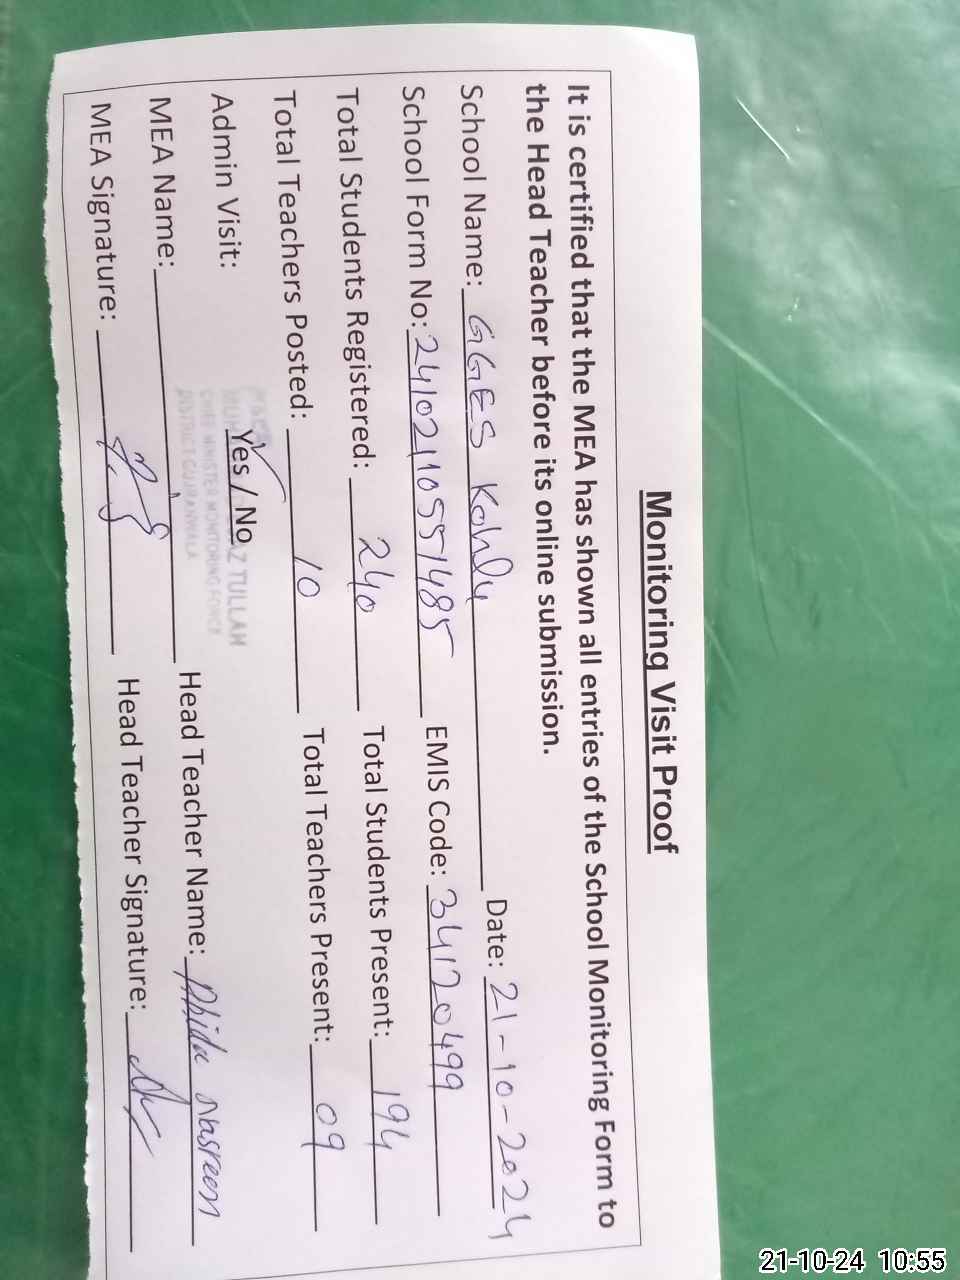 Monitoring Visit Proof
It is certified that the MEA has shown all entries of the School Monitoring Form to
the Head Teacher before its online submission.
School Name: GGES Kohly Date: 21-10-2024
School Form No: 24102110551485 EMIS Code: 34120499
Total Students Registered: 240 Total Students Present: 194
Total Teachers Posted: 10 Total Teachers Present: 09
Admin Visit: Yes / No
TULLAH
CHIEF MINISTER MONITORING FORCE
DISTRICT GUJRANWALA
MEA Name: Head Teacher Name: nasreen
MEA Signature: Head Teacher Signature:
21-10-24 10:55